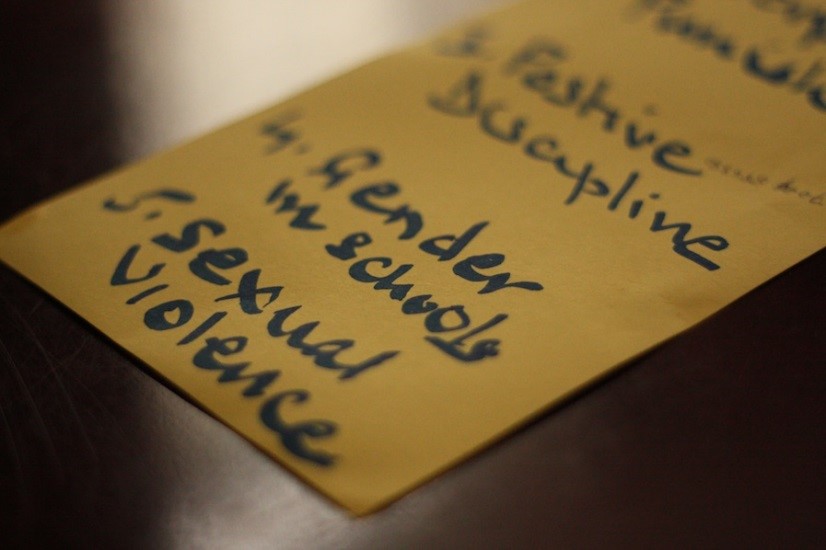 3. Postive
Discipline
4. Gender
in schools
5. Sexual
Violence